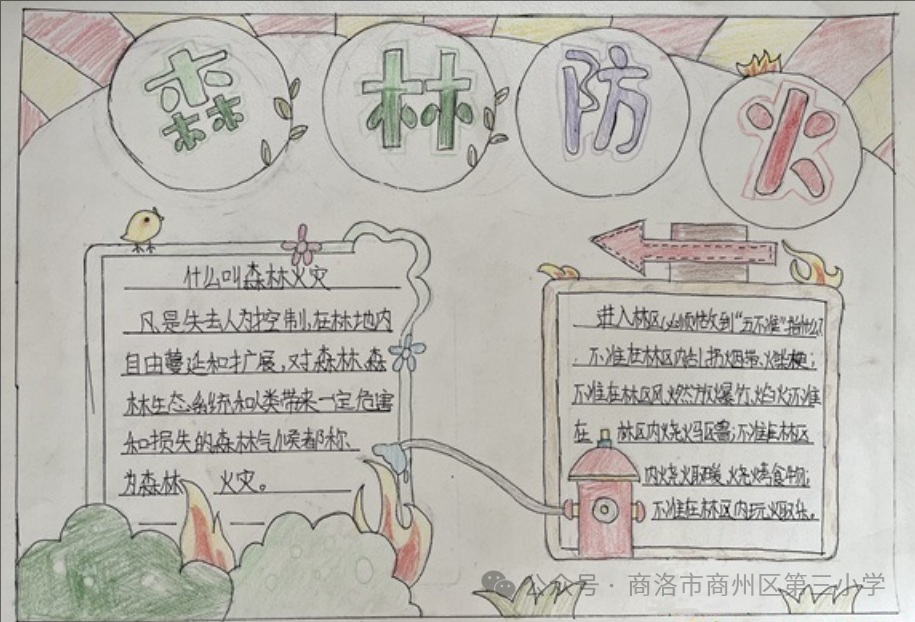 森林防火
什么叫森林火灾
凡是失去人为控制,在林地内
自由蔓延和扩展,对森林、森
林生态系统和人类带来一定危害
和损失的森林气候都称
为森林 火灾。
进入林区必须做到“五不准”指什么?
不准在林区内乱扔烟蒂、火柴梗;
不准在林区风燃放爆竹、焰火;不准
在 林区内烧火驱兽;不准在林区
内烧火取暖、烧烤食物;
不准在林区内玩火取乐。
公众号·商洛市商州区第三小学